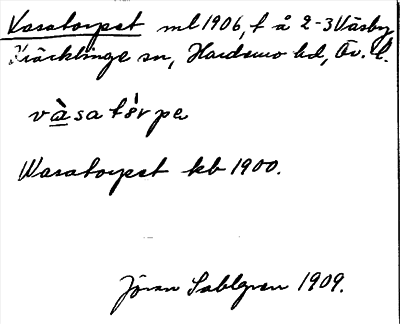 Vasatorpet ml 1906, t å 2-3 Väsby
Kräcklinge sn, Hardemo hd, Ör. l.
vàsatörpe
Wasatorpet kb 1900.
Jöran Sahlgren 1909.